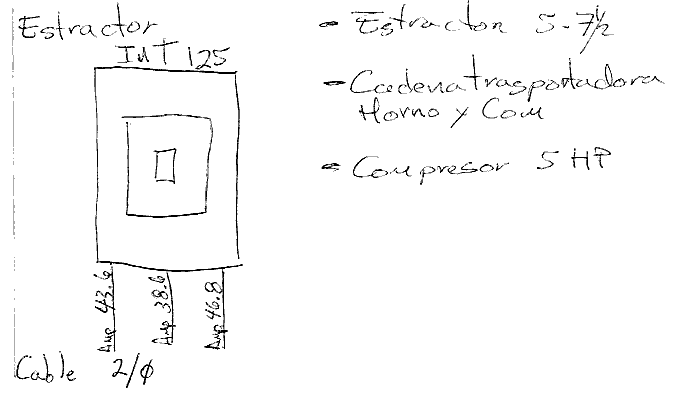 Estractor
INT 125
Amp 43.6
Amp 38.6
Amp 46.8
Cable 2/0
- Estractor 5-7½
- Cadena trasportadora
Horno y Com
- Compresor 5 HP